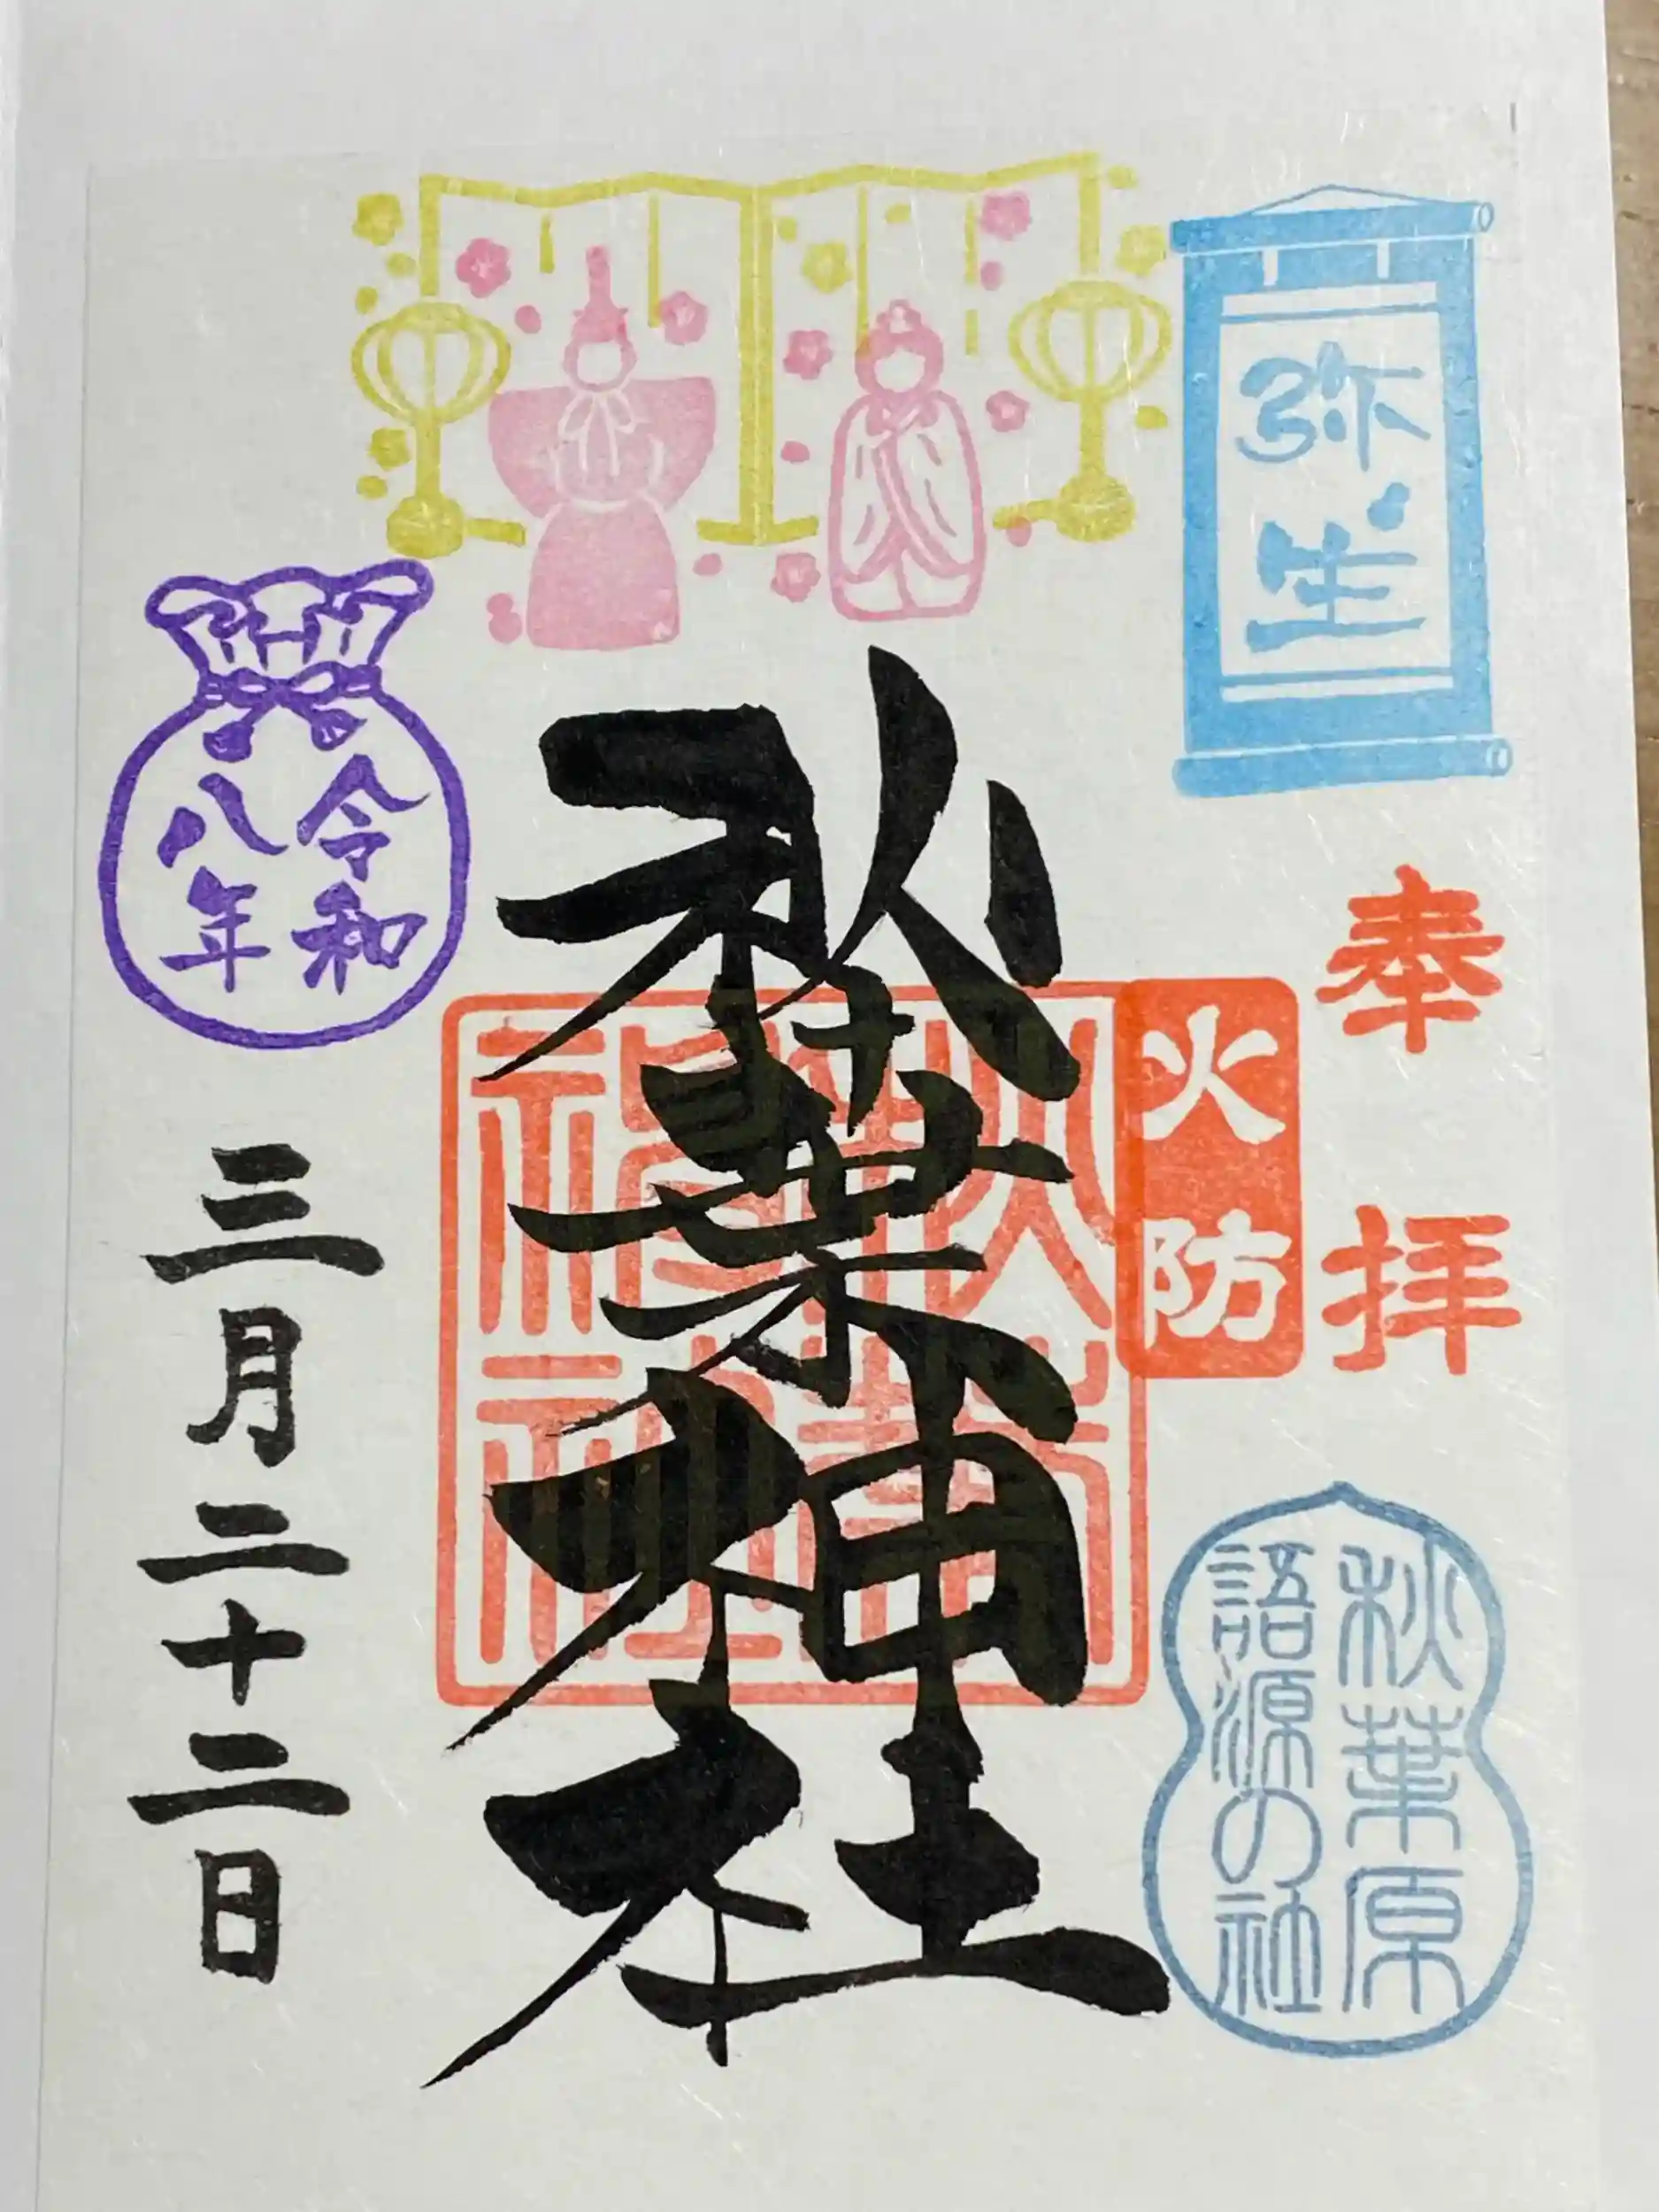 弥生
奉拝
火防
秋葉原
語源の社
秋葉神社
秋葉
神社
令和
八年
三月二十二日